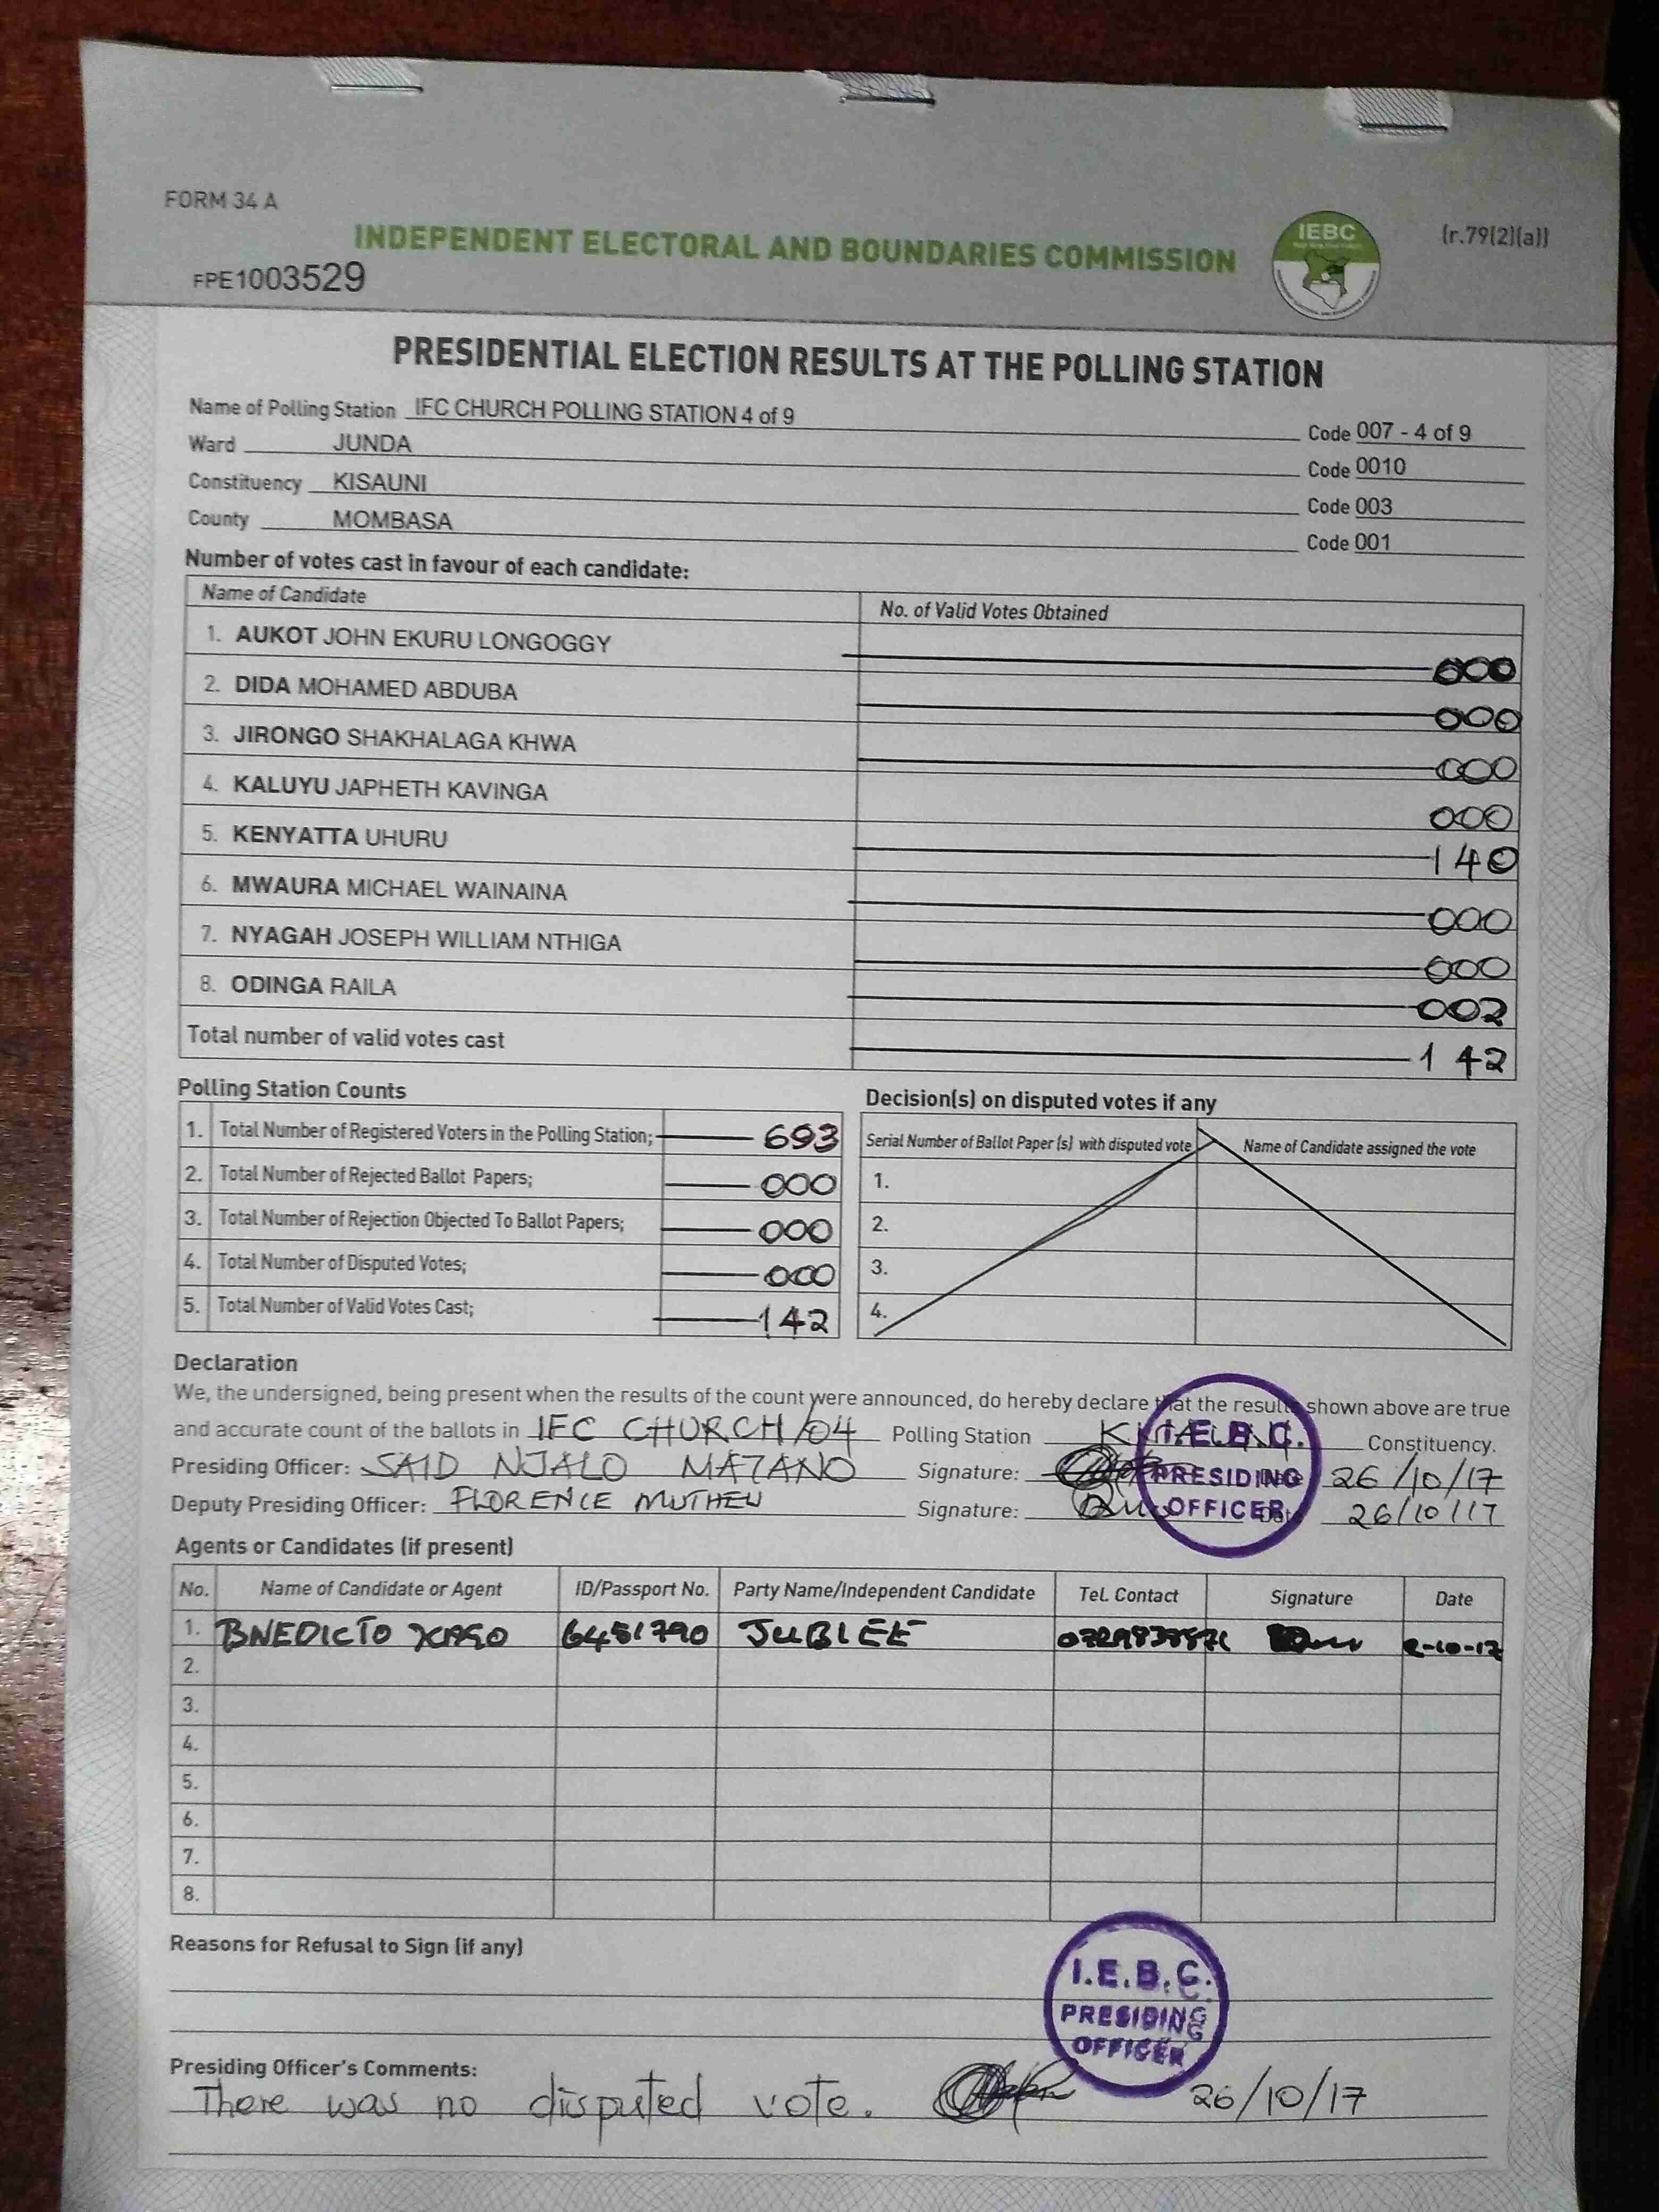 FORM 34 A
INDEPENDENT ELECTORAL AND BOUNDARIES COMMISSION
IEBC
(r.79(2)(a))
FPE1003529
PRESIDENTIAL ELECTION RESULTS AT THE POLLING STATION
Name of Polling Station IFC CHURCH POLLING STATION 4 of 9 Code 007 - 4 of 9
Ward JUNDA Code 0010
Constituency KISAUNI Code 003
County MOMBASA Code 001
Number of votes cast in favour of each candidate:
Name of Candidate No. of Valid Votes Obtained
1. AUKOT JOHN EKURU LONGOGGY 000
2. DIDA MOHAMED ABDUBA 000
3. JIRONGO SHAKHALAGA KHWA 000
4. KALUYU JAPHETH KAVINGA 000
5. KENYATTA UHURU 140
6. MWAURA MICHAEL WAINAINA 000
7. NYAGAH JOSEPH WILLIAM NTHIGA 000
8. ODINGA RAILA 002
Total number of valid votes cast 142
Polling Station Counts
1. Total Number of Registered Voters in the Polling Station; 693
2. Total Number of Rejected Ballot Papers; 000
3. Total Number of Rejection Objected To Ballot Papers; 000
4. Total Number of Disputed Votes; 000
5. Total Number of Valid Votes Cast; 142
Decision(s) on disputed votes if any
Serial Number of Ballot Paper (s) with disputed vote Name of Candidate assigned the vote
1.
2.
3.
4.
Declaration
We, the undersigned, being present when the results of the count were announced, do hereby declare that the results shown above are true
and accurate count of the ballots in IFC CHURCH/04 Polling Station Constituency.
Presiding Officer: SAID NJALO MATANO Signature: Date 26/10/17
Deputy Presiding Officer: FLORENCE MUTHEU Signature: Date 26/10/17
I.E.B.C.
PRESIDING
OFFICER
Agents or Candidates (if present)
No. Name of Candidate or Agent ID/Passport No. Party Name/Independent Candidate Tel. Contact Signature Date
1. BNEDICTO 6451790 JUBLEE
2.
3.
4.
5.
6.
7.
8.
Reasons for Refusal to Sign (if any)
I.E.B.C.
PRESIDING
OFFICER
Presiding Officer's Comments:
There was no disputed vote. 26/10/17